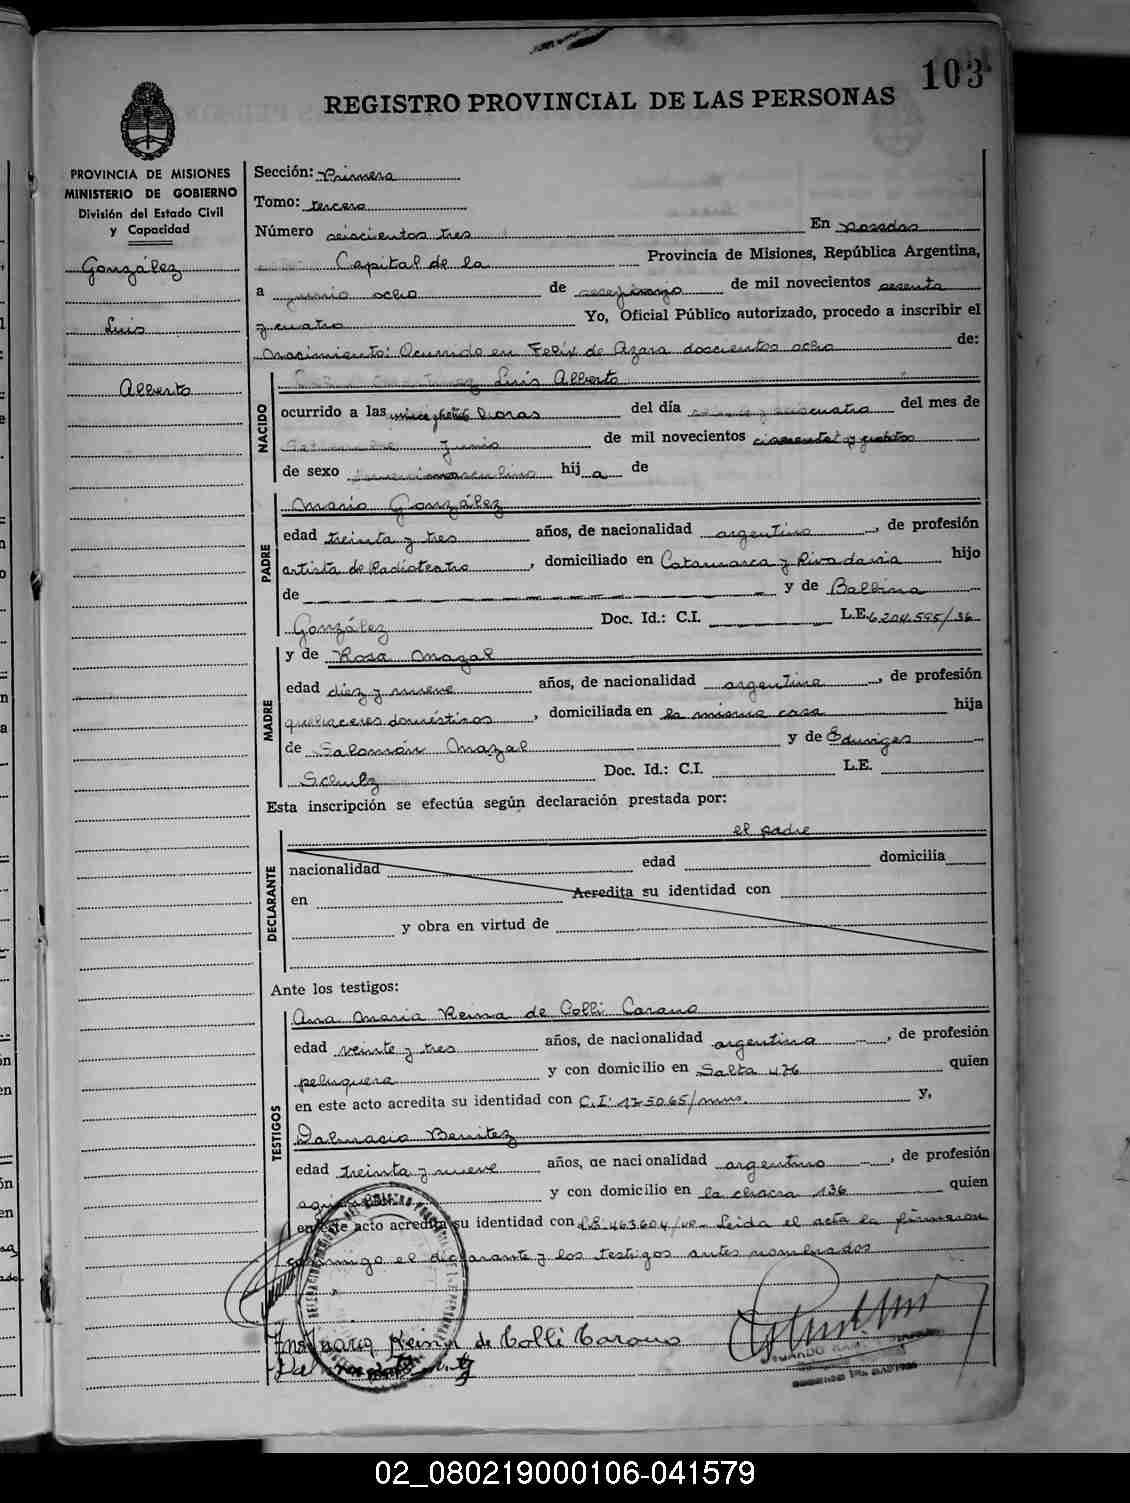 103
REGISTRO PROVINCIAL DE LAS PERSONAS
PROVINCIA DE MISIONES
MINISTERIO DE GOBIERNO
División del Estado Civil
y Capacidad
González
Luis
Alberto
Sección: Primera
Tomo: tercero
Número seiscientos tres En Posadas
Capital de la Provincia de Misiones, República Argentina,
a junio ocho de de mil novecientos sesenta
y cuatro Yo, Oficial Público autorizado, procedo a inscribir el
nacimiento: Ocurrido en Felix de Azara doscientos ocho de:
NACIDO
Luis Alberto
ocurrido a las horas del día cuatro del mes de
Junio de mil novecientos
de sexo masculino hij a de
PADRE
Mario González
edad treinta y tres años, de nacionalidad argentino, de profesión
artista de Radioteatro, domiciliado en Catamarca y Rivadavia hijo
de y de Balbina
González Doc. Id.: C.I. L.E. 6.204.595/36
MADRE
y de Rosa Mazal
edad diez y nueve años, de nacionalidad argentina, de profesión
quehaceres domésticos, domiciliada en la misma casa hija
de Salomón Mazal y de Eduviges
Schulz Doc. Id.: C.I. L.E.
Esta inscripción se efectúa según declaración prestada por:
DECLARANTE
el padre
nacionalidad edad domicilia
en Acredita su identidad con
y obra en virtud de
Ante los testigos:
TESTIGOS
Ana Maria Reina de Colli Carano
edad veinte y tres años, de nacionalidad argentina, de profesión
peluquera y con domicilio en Salta 476 quien
en este acto acredita su identidad con C.I. 175065/mns. y,
Dalmacio Benitez
edad treinta y nueve años, de nacionalidad argentino, de profesión
y con domicilio en la chacra 136 quien
en este acto acredita su identidad con 463.604/ Leida el acta la firmaron
conmigo el declarante y los testigos antes nombrados
Reina de Colli Carano
02_080219000106-041579